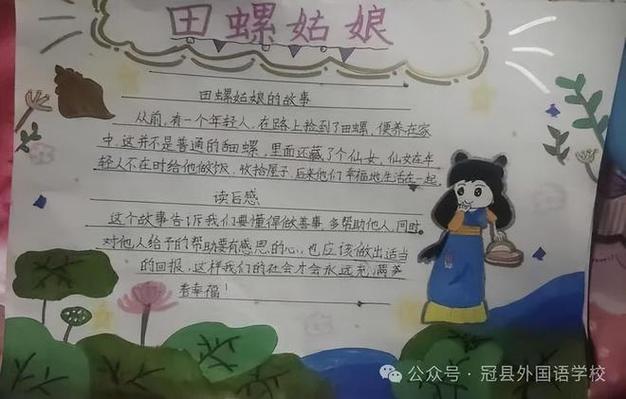 田螺姑娘
田螺姑娘的故事
从前,有一个年轻人,在路上捡到了田螺,便养在家
中,这并不是普通的田螺,里面还藏了个仙女,仙女在年
轻人不在时给他做饭,收拾屋子,后来他们幸福地生活在一起
读后感
这个故事告诉我们要懂得做善事,多帮助他人,同时
对他人给予的帮助要有感恩的心,也应该做出适当
的回报,这样我们的社会才会永远充满
幸福!
公众号·冠县外国语学校